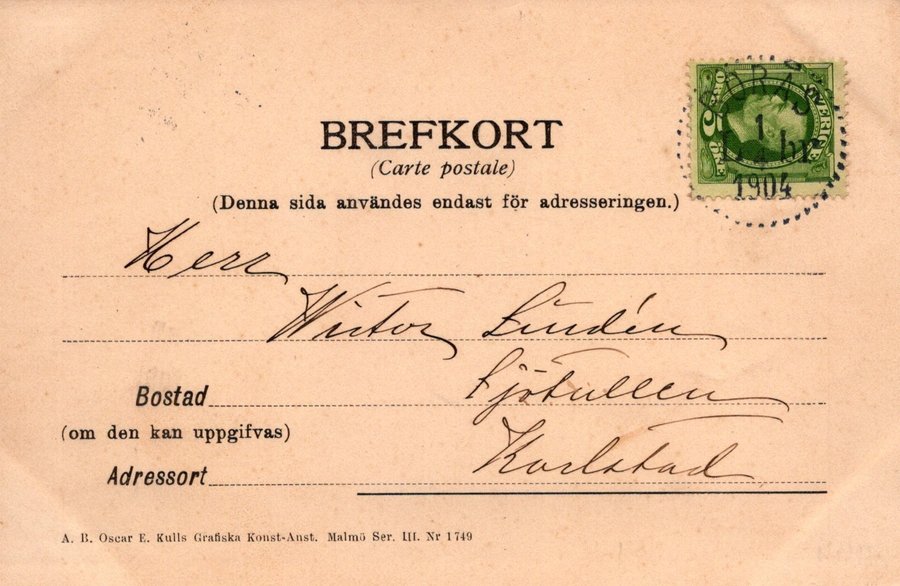 BREFKORT
(Carte postale)
(Denna sida användes endast för adresseringen.)
SVERIGE
5
1
1904
Herr
Wictor Lindén
Bostad Sjötullen
(om den kan uppgifvas)
Adressort Karlstad
A. B. Oscar E. Kulls Grafiska Konst-Anst. Malmö Ser. III. Nr 1749